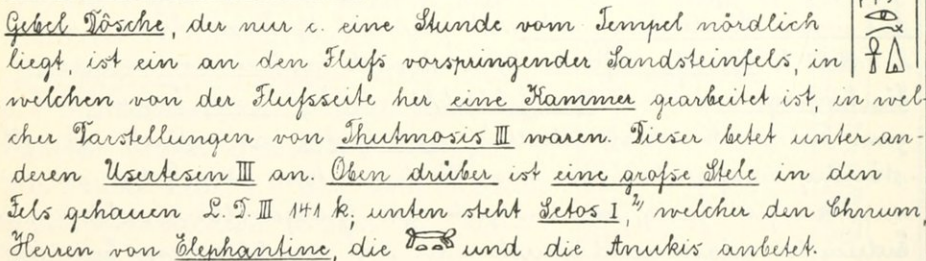 Gebel Dôsche, der nur c. eine Stunde vom Tempel nördlich
liegt, ist ein an den Flufs vorspringender Sandsteinfels, in
welchen von der Flufsseite her eine Kammer gearbeitet ist, in wel-
cher Darstellungen von Thutmosis III waren. Dieser betet unter an-
deren Usertesen III an. Oben drüber ist eine grofse Stele in den
Fels gehauen L. D. III 141 k; unten steht Setos I,²⁾ welcher den Chnum,
Herren von Elephantine, die und die Anukis anbetet.